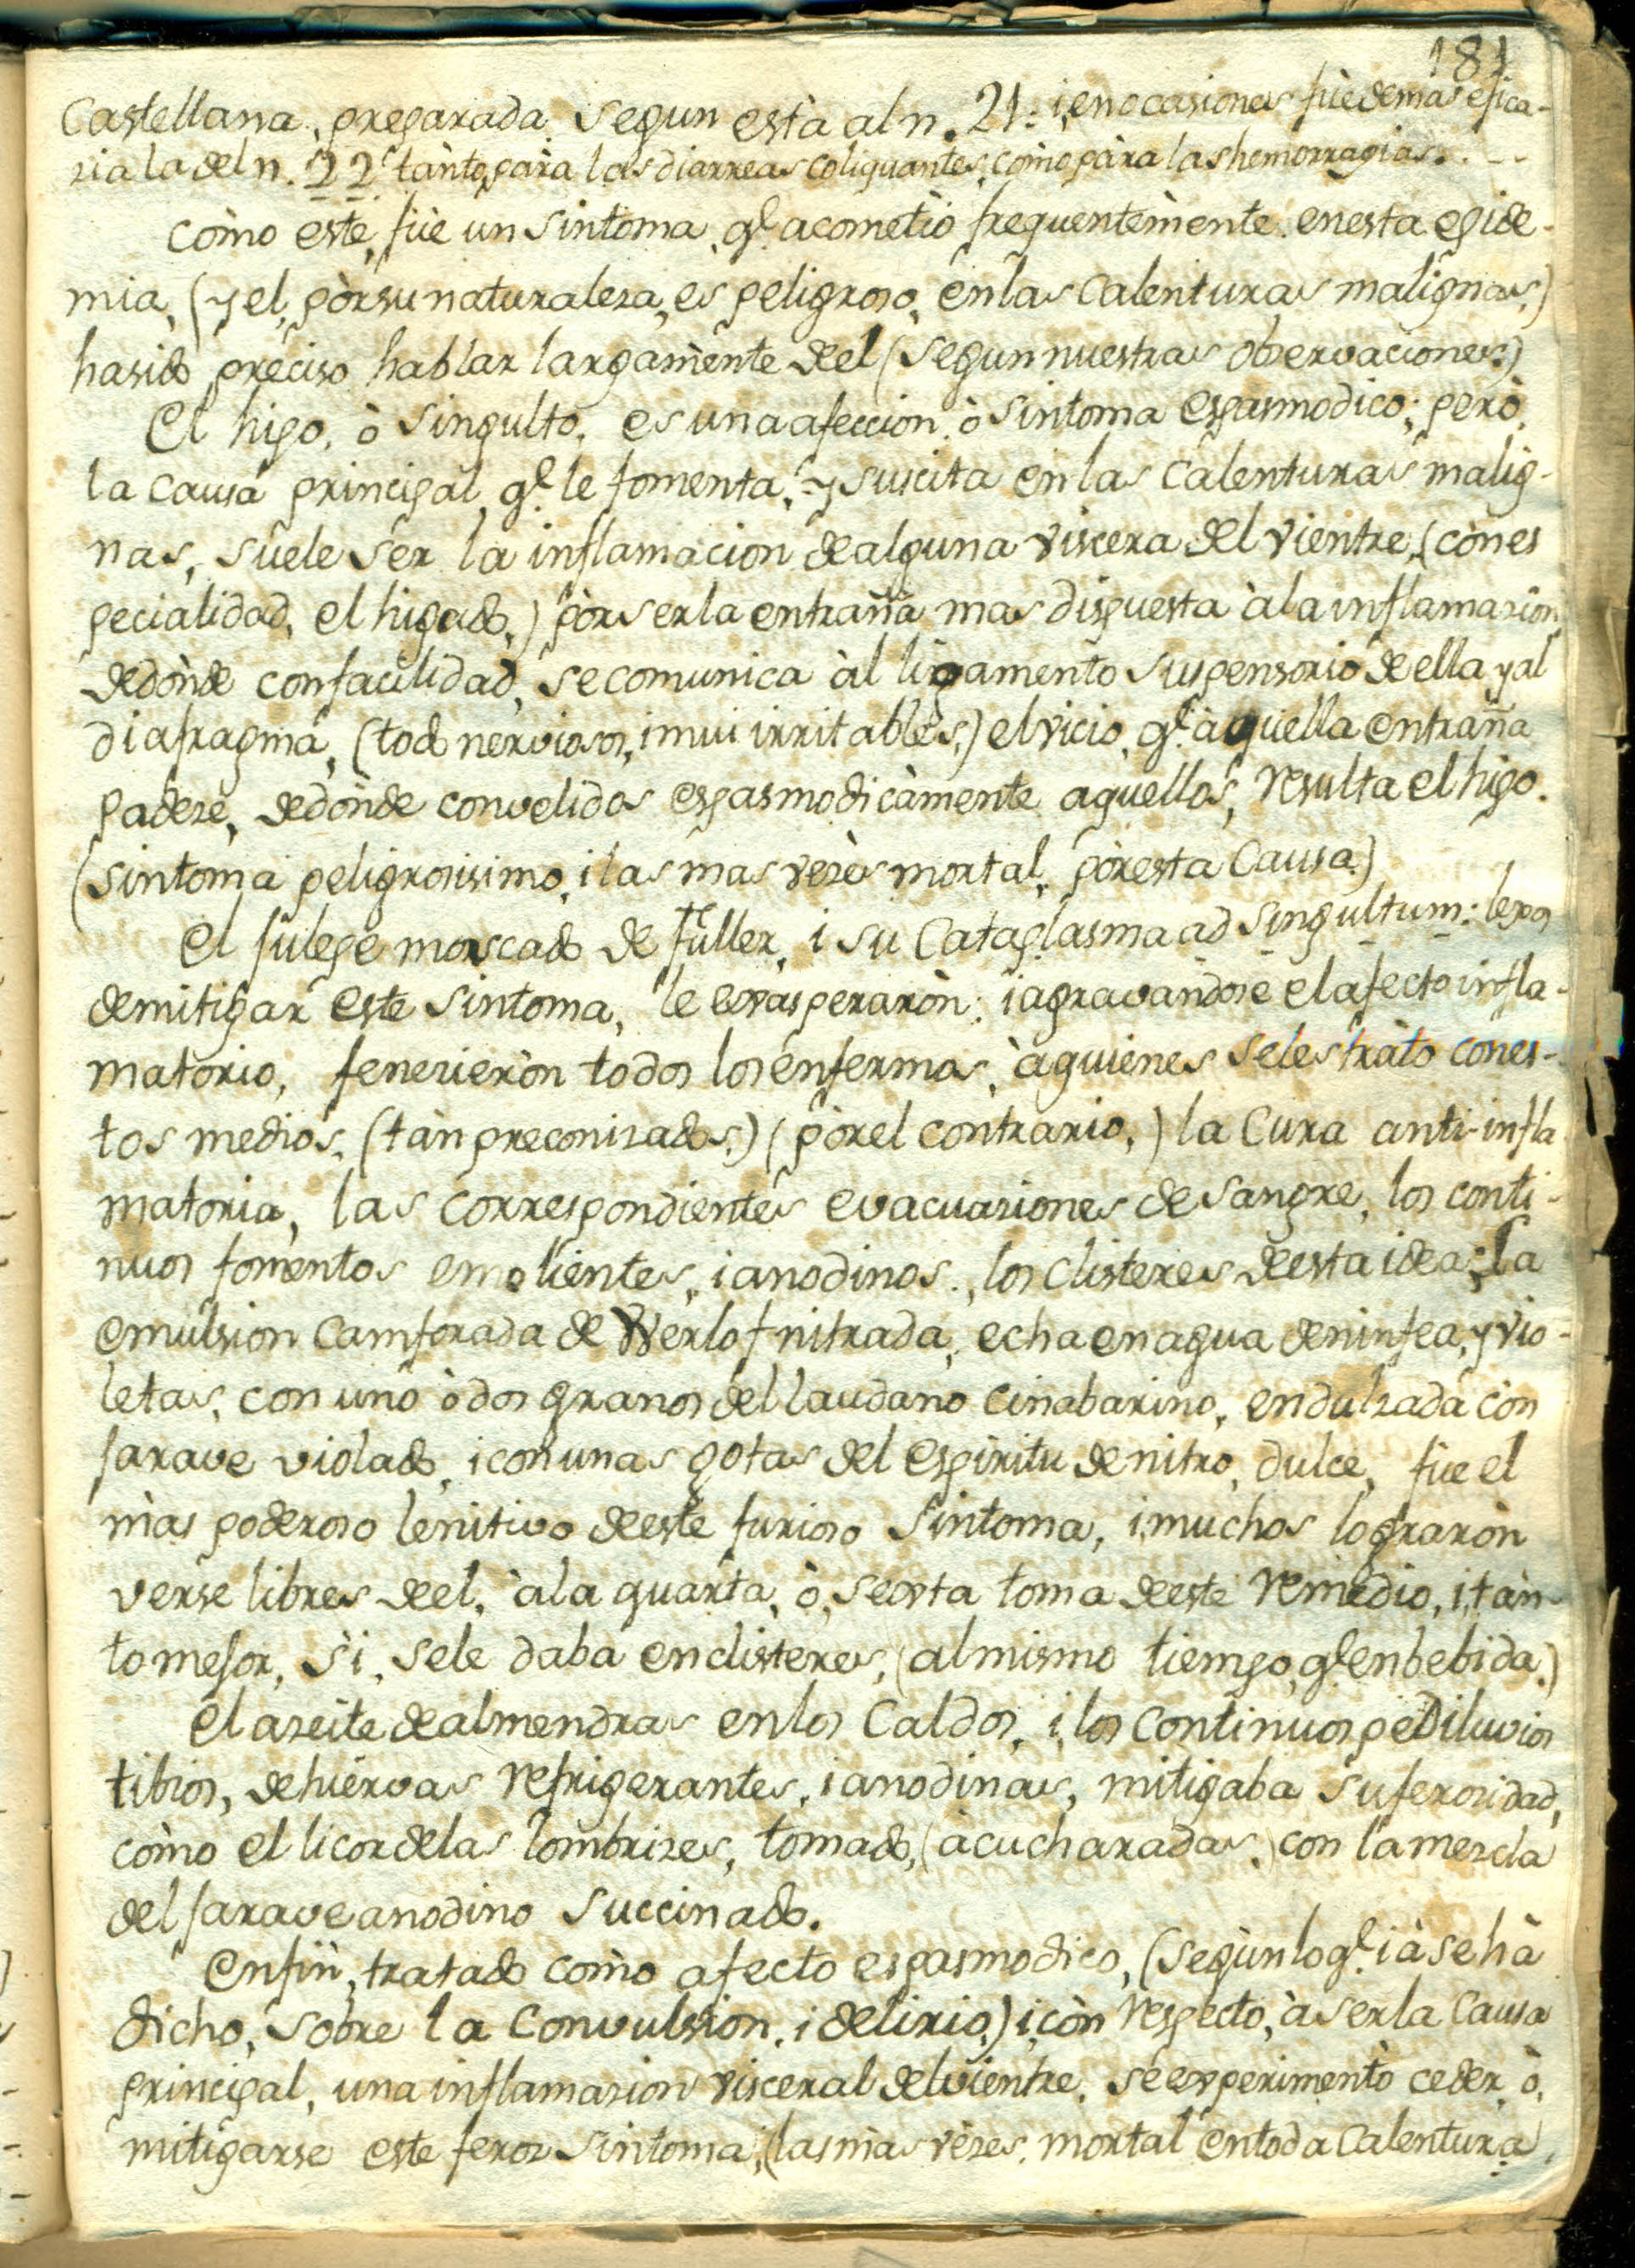 181
Castellana, preparada segun està al n. 21: i en ocasiones fùe de mas efica-
zia la del n. 22 tànto, pàra las diarreas coliquantes, còmo pàra las hemorragias. . - -
còmo este, fùe un sintoma, q.e acometiò frequentemènte en esta epide-
mia, (y el, pòr su naturaleza, es peligroso, en las calenturas malignas,)
ha sido preciso hablar largamènte de el (segun nuestras observaciones.)
El hipo, ò singulto, es una afeccion, ò sintoma espasmodico; però,
la causa principal, q.e le fomenta, y suscita en las calenturas malig-
nas, sùele ser la inflamacion de alguna viscera del vientre, (còn es
pecialidad, el higado,) pòr ser la entraña mas dispuesta à la inflamasion
de dònde con facilidad, se comunica àl ligamento suspensorio de ella y al
diafragma, (todo nerviosos, i mui irritables,) el vicio, q.e àquella entraña
padeze, de dònde convelidos espasmodicàmente aquellos, resulta el hipo.
(sintoma peligrosisimo, i las mas vezès mortal, pòr esta causa.)
El julepe moscado de Fuller, i su Cataplasma ad singultum: lexos
de mitigar este sintoma, le exasperaròn: i agravandose el afecto infla-
matorio, fenezieròn todos los enfermos, àquienes se les tràto con es-
tos medios, (tàn preconizados.) (pòr el contrario,) la cura anti-infla
matoria, las correspondientes evacuasiones de sangre, los conti-
nuos fomentos emolientes, i anodinos, los clisteres de esta idea: la
emulsion camforada de Werlof nitrada, echa en agua de ninfea, y vio-
letas, con uno ò dos granos del laudano cinabarino, endulzada còn
jarave violado, i con unas gotas del espiritu de nitro, dulce, fùe el
màs poderoso lenitivo de este furioso sintoma, i muchos lograròn
verse libres de el, àla quarta, ò, sexta toma de este remedio, i, tàn-
to mejor, si, se le daba en clisteres, (al mismo tiempo, q.e en bebida.)
El azeite de almendras en los caldos, i, los continuos pediluvios
tibios, de hiervas refrigerantes, i anodinas, mitigaba su ferosidad,
còmo el licor de las lombrizes, tomado, (a cucharadas,) con la mezcla
del jarave anodino succinado.
En fin, tratado còmo afecto espasmodico, (segùn lo q.e ià se hà
dicho, sobre la convulsion, i delirio,) i, còn respecto, à ser la causa
principal, una inflamasion visceral del vientre, se experimentò ceder, ò,
mitigarse este feroz sintoma, (las màs vèzes, mortal en toda calentura,